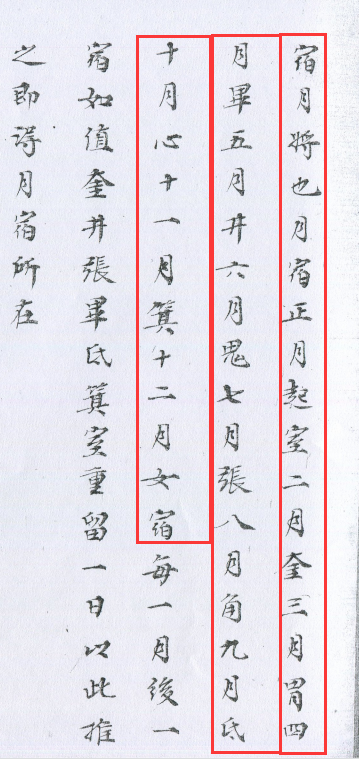 宿月將也月宿正月起室二月奎三月胃四
月畢五月井六月鬼七月張八月角九月氐
十月心十一月箕十二月女宿每一月後一
宿如值奎井張畢氐箕室重留一日以此推
之即得月宿所在